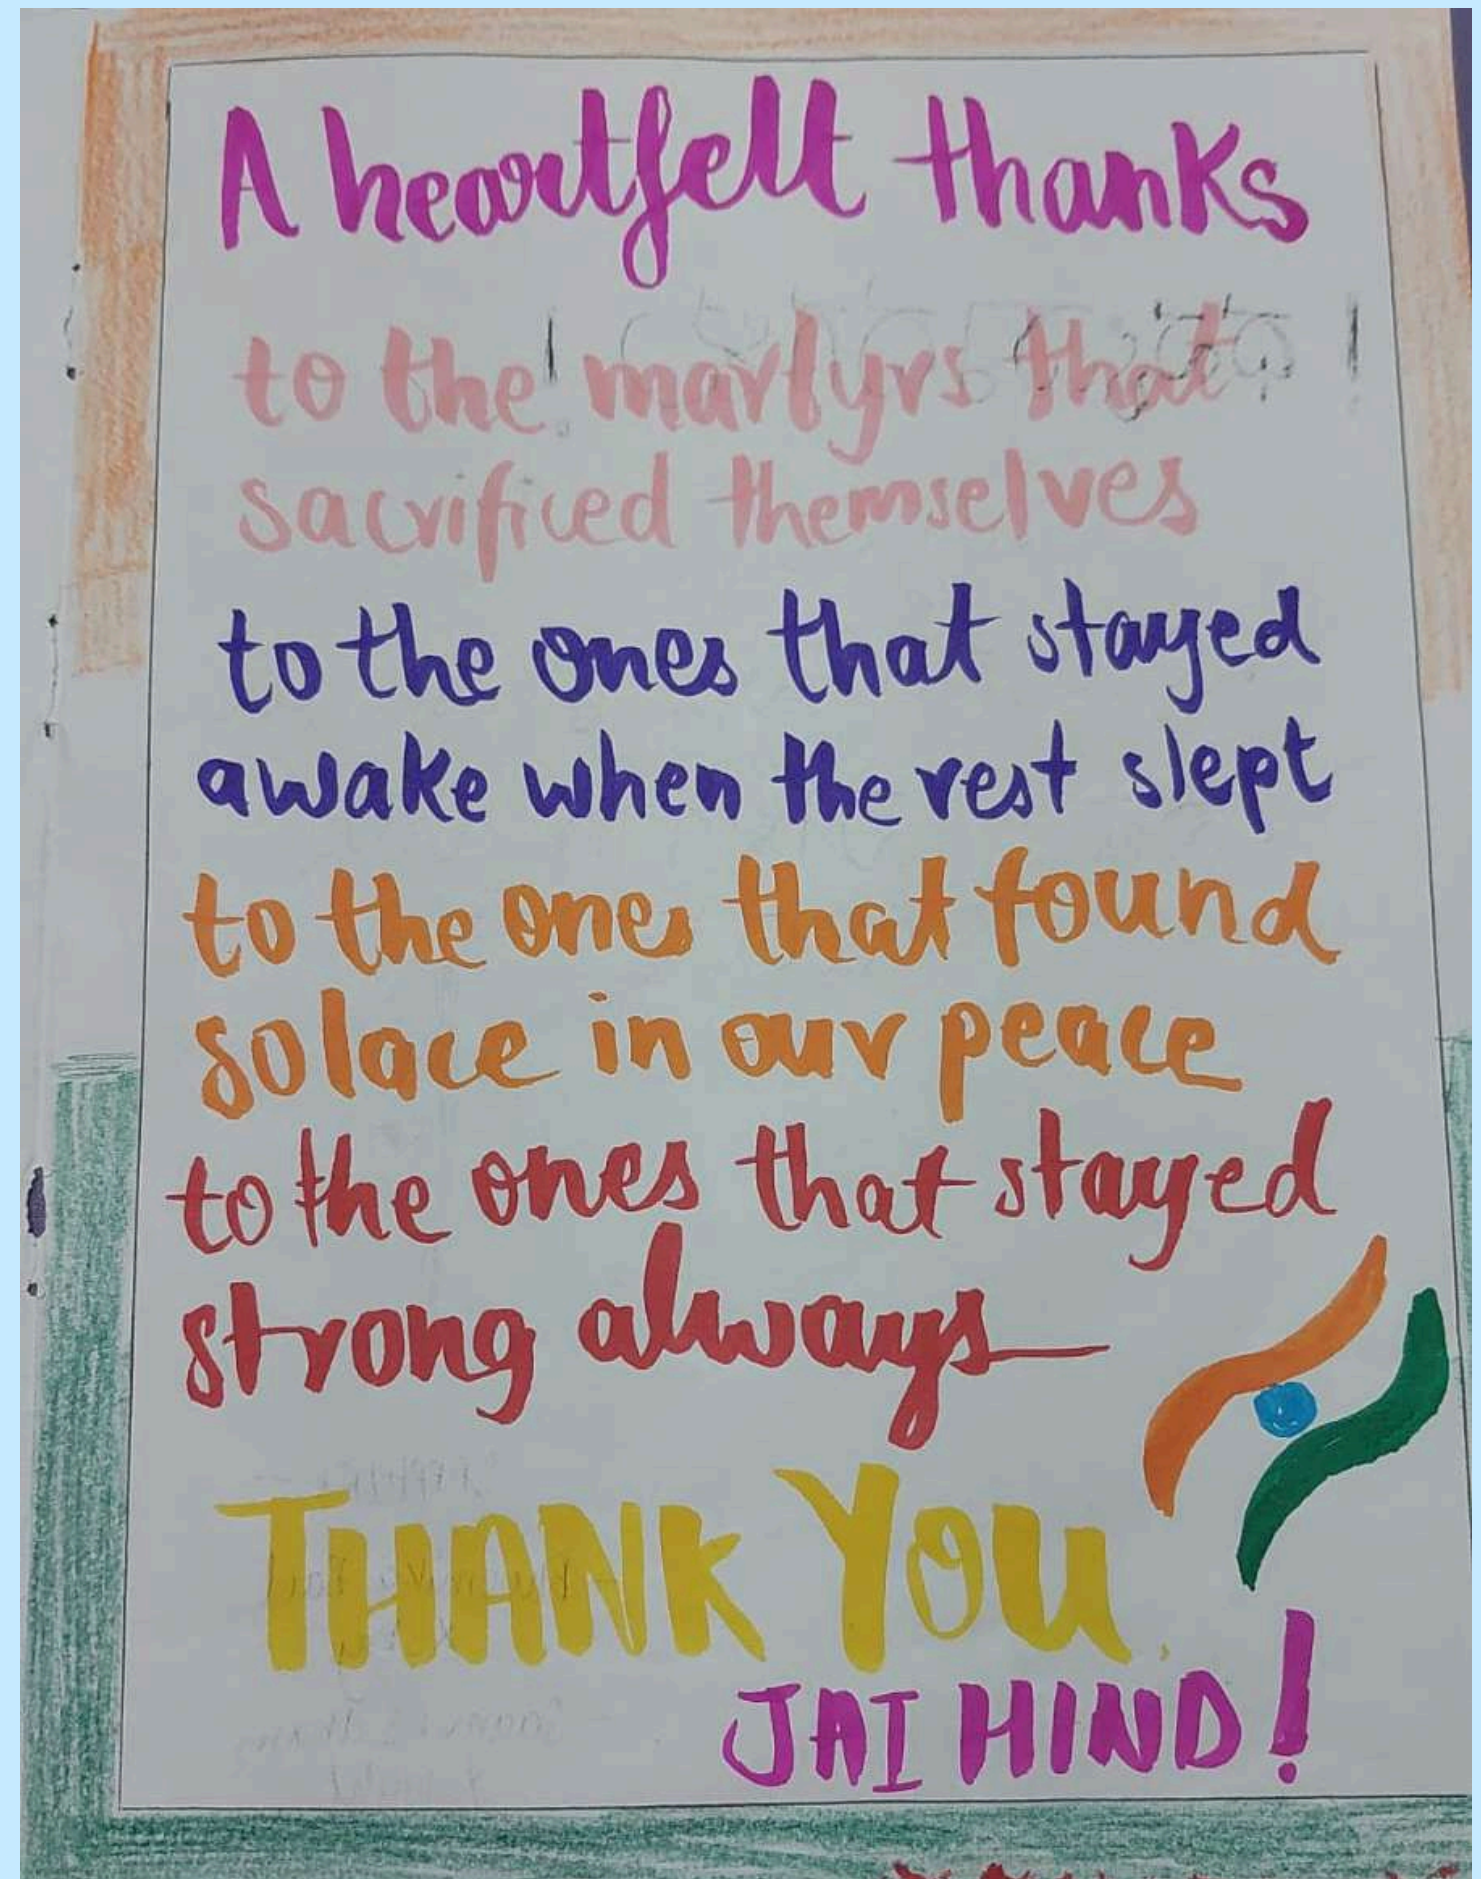 A heartfelt thanks
to the martyrs that
sacrificed themselves
to the ones that stayed
awake when the rest slept
to the ones that found
solace in our peace
to the ones that stayed
strong always
THANK YOU
JAI HIND!